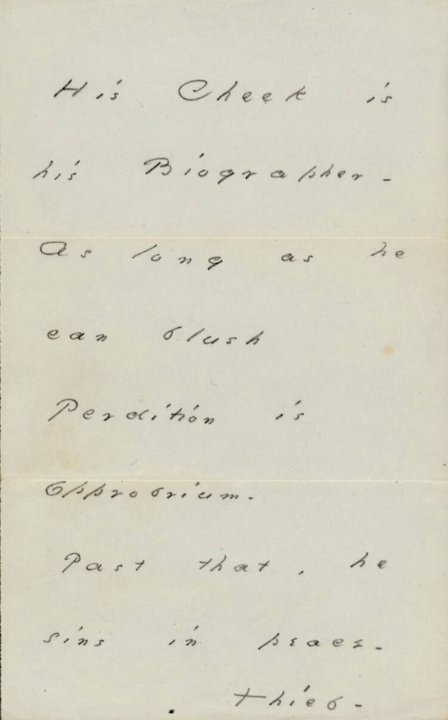 His Cheek is
his Biographer -
As long as he
can blush
Perdition is
Opprobrium -
Past that, he
sins in peace -
Thief -